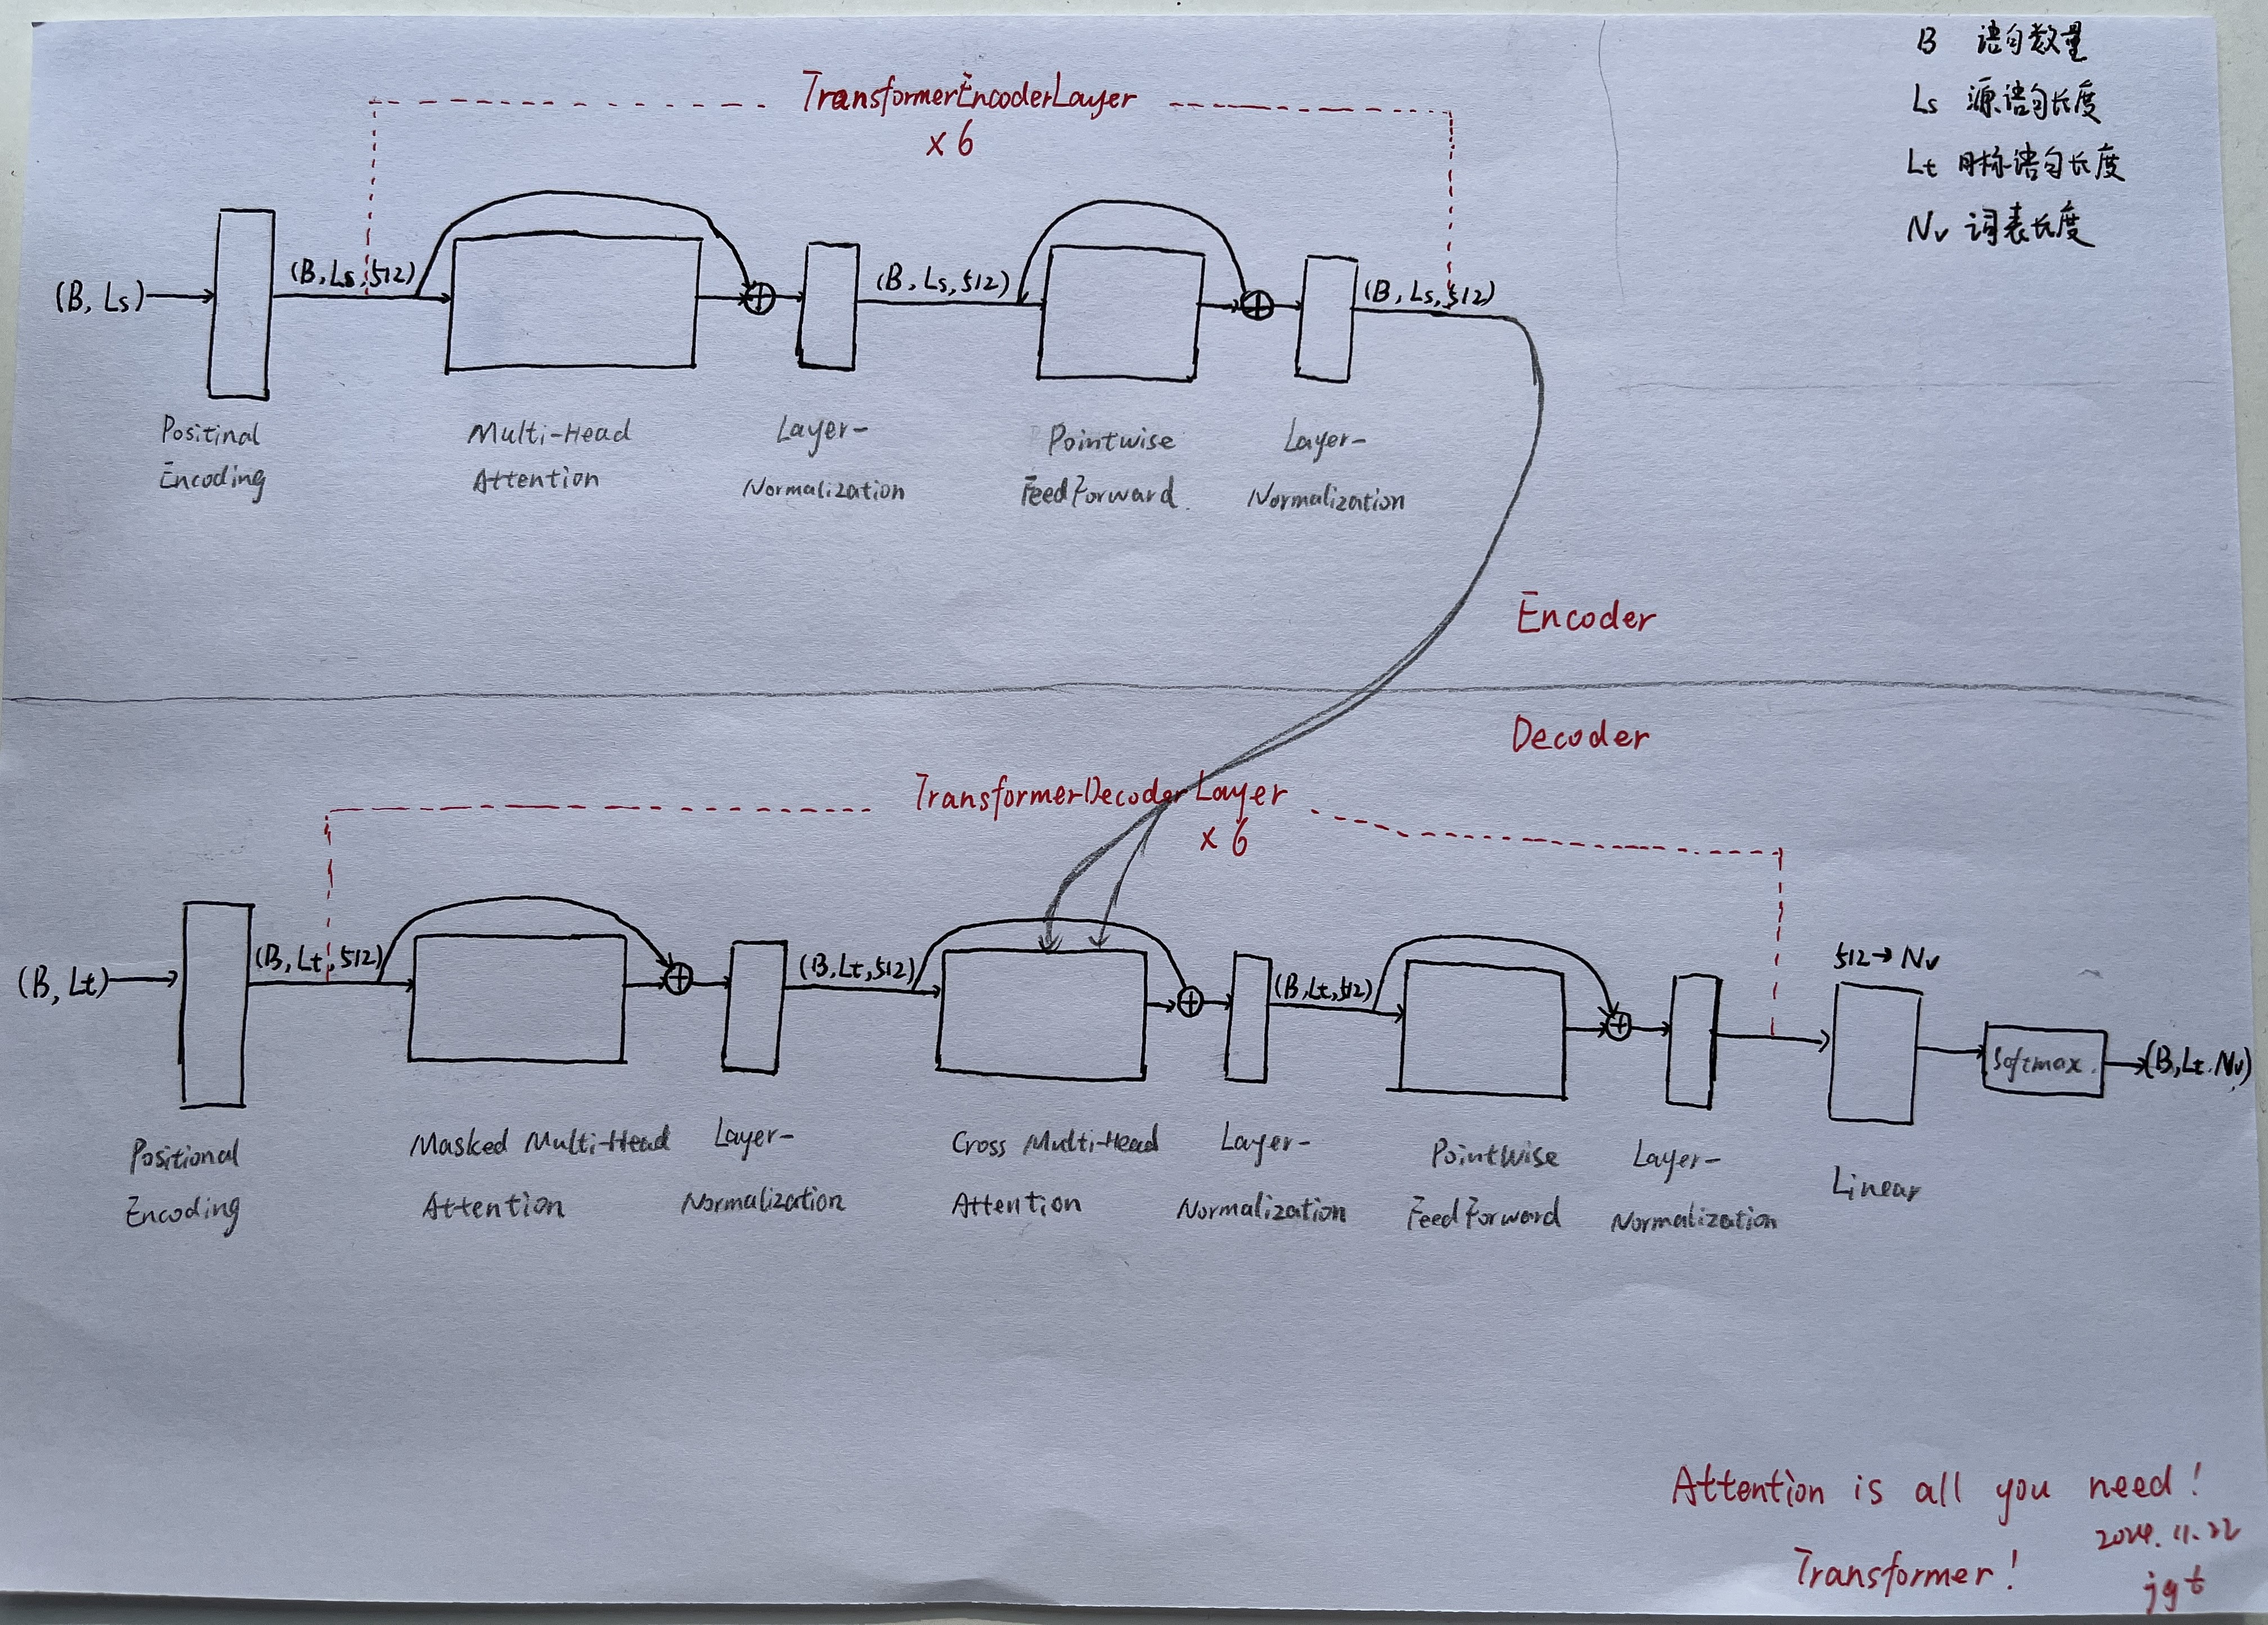 B 语句数量
Ls 源语句长度
Lt 目标语句长度
Nv 词表长度
TransformerEncoderLayer
x 6
(B, Ls)
(B, Ls, 512)
(B, Ls, 512)
(B, Ls, 512)
Positinal
Encoding
Multi-Head
Attention
Layer-
Normalization
Pointwise
FeedForward.
Layer-
Normalization
Encoder
Decoder
TransformerDecoderLayer
x 6
(B, Lt)
(B, Lt, 512)
(B, Lt, 512)
(B, Lt, 512)
512→Nv
Softmax.
(B, Lt. Nv)
Positional
Encoding
Masked Multi-Head
Attention
Layer-
Normalization
Cross Multi-Head
Attention
Layer-
Normalization
PointWise
FeedForward
Layer-
Normalization
Linear
Attention is all you need!
2024.11.22
Transformer!
jgt